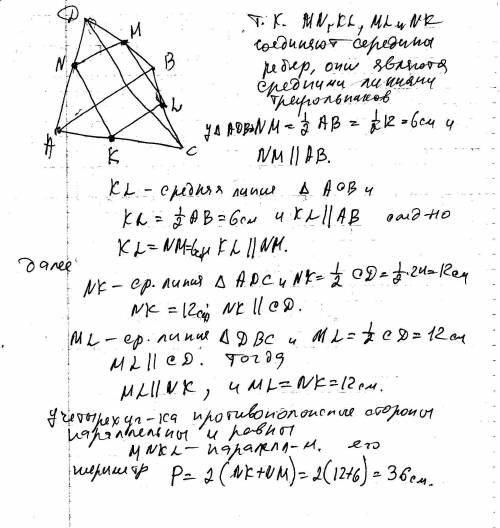 D
M
N
B
L
A
K
C
Т.к. MN, KL, ML и NK
соединяют середины
ребер, они являются
средними линиями
треугольников
у △ADB NM = 1/2 AB = 1/2 12 = 6см и
NM || AB.
KL - средняя линия △ ACB и
KL = 1/2 AB = 6см и KL || AB след-но
KL = NM = 6см KL || NM.
далее
NK - ср. линия △ ADC и NK = 1/2 CD = 1/2 · 24 = 12см
NK = 12см, NK || CD.
ML - ср. линия △ DBC и ML = 1/2 CD = 12см
ML || CD. тогда
ML || NK, и ML = NK = 12см.
у четырехуг-ка противоположные стороны
параллельны и равны
MNKL - паралел-м. его
периметр P = 2(NK + NM) = 2(12 + 6) = 36см.